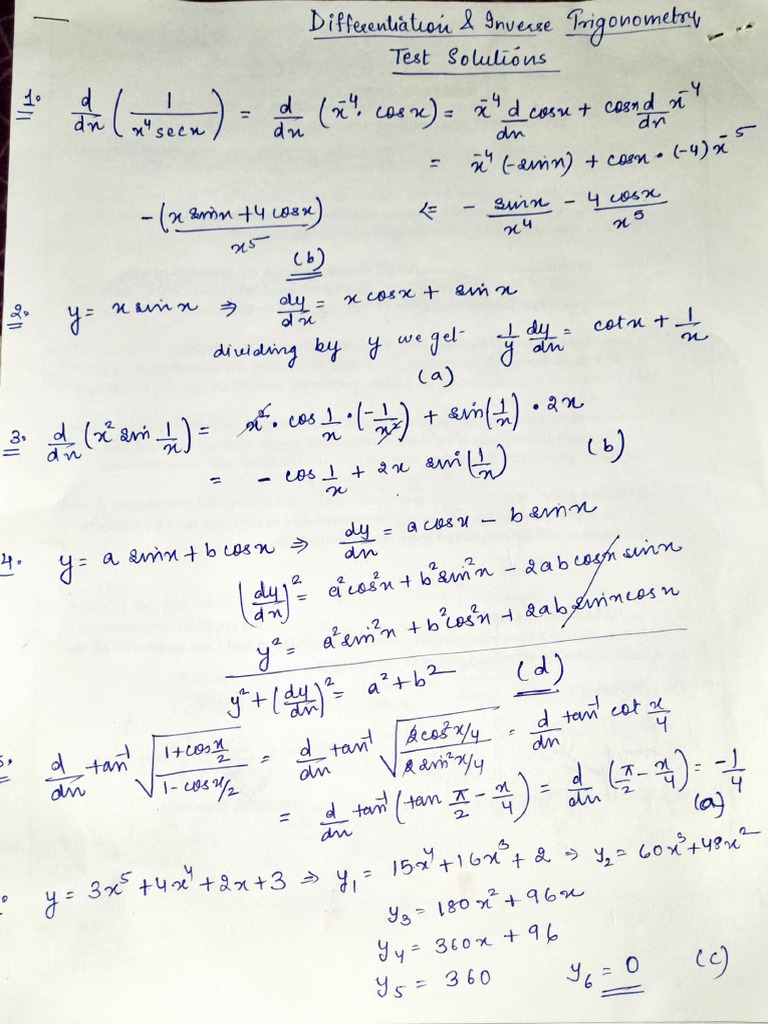 Differentiation & Inverse Trigonometry
Test Solutions
1. d/dx (1/(x⁴ sec x)) = d/dx (x⁻⁴ · cos x) = x⁻⁴ d/dx cos x + cos x d/dx x⁻⁴
= x⁻⁴ (-sin x) + cos x · (-4) x⁻⁵
-(x sin x + 4 cos x)/x⁵ <= - sin x/x⁴ - 4 cos x/x⁵
(b)
2. y = x sin x ⇒ dy/dx = x cos x + sin x
dividing by y we get 1/y dy/dx = cot x + 1/x
(a)
3. d/dx (x² sin 1/x) = x² · cos 1/x · (-1/x²) + sin(1/x) · 2x
= - cos 1/x + 2x sin(1/x) (b)
4. y = a sin x + b cos x ⇒ dy/dx = a cos x - b sin x
(dy/dx)² = a² cos² x + b² sin² x - 2ab cos x sin x
y² = a² sin² x + b² cos² x + 2ab sin x cos x
y² + (dy/dx)² = a² + b² (d)
5. d/dx tan⁻¹ √((1 + cos x/2)/(1 - cos x/2)) = d/dx tan⁻¹ √((2 cos² x/4)/(2 sin² x/4)) = d/dx tan⁻¹ cot x/4
= d/dx tan⁻¹ (tan π/2 - x/4) = d/dx (π/2 - x/4) = -1/4
(a)
y = 3x⁵ + 4x⁴ + 2x + 3 ⇒ y₁ = 15x⁴ + 16x³ + 2 ⇒ y₂ = 60x³ + 48x²
y₃ = 180x² + 96x
y₄ = 360x + 96
y₅ = 360 y₆ = 0 (c)